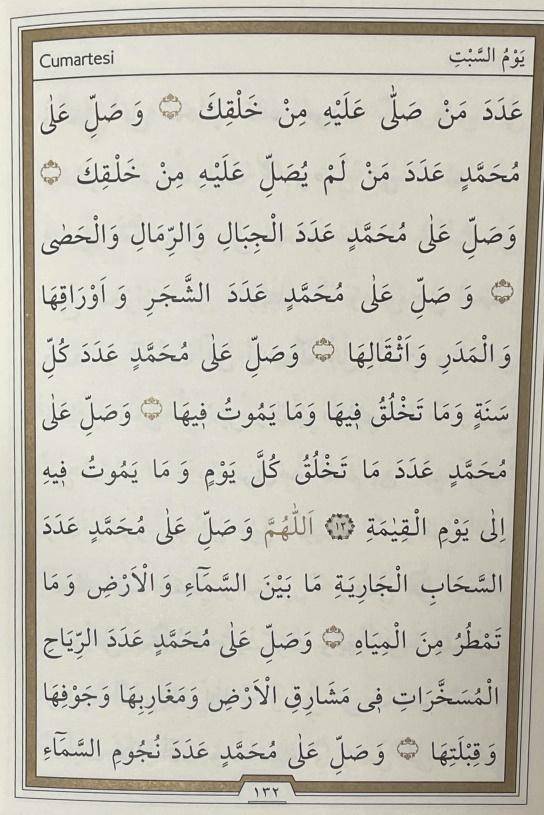 Cumartesi
يَوْمُ السَّبْتِ
عَدَدَ مَنْ صَلّٰى عَلَيْهِ مِنْ خَلْقِكَ ۝ وَ صَلِّ عَلٰى
مُحَمَّدٍ عَدَدَ مَنْ لَمْ يُصَلِّ عَلَيْهِ مِنْ خَلْقِكَ ۝
وَصَلِّ عَلٰى مُحَمَّدٍ عَدَدَ الْجِبَالِ وَالرِّمَالِ وَالْحَصٰى
۝ وَ صَلِّ عَلٰى مُحَمَّدٍ عَدَدَ الشَّجَرِ وَ اَوْرَاقِهَا
وَ الْمَدَرِ وَ اَثْقَالِهَا ۝ وَصَلِّ عَلٰى مُحَمَّدٍ عَدَدَ كُلِّ
سَنَةٍ وَمَا تَخْلُقُ فِيهَا وَمَا يَمُوتُ فِيهَا ۝ وَصَلِّ عَلٰى
مُحَمَّدٍ عَدَدَ مَا تَخْلُقُ كُلَّ يَوْمٍ وَ مَا يَمُوتُ فِيهِ
اِلٰى يَوْمِ الْقِيٰمَةِ ﴿١٣﴾ اَللّٰهُمَّ وَ صَلِّ عَلٰى مُحَمَّدٍ عَدَدَ
السَّحَابِ الْجَارِيَةِ مَا بَيْنَ السَّمَٓاءِ وَ الْاَرْضِ وَ مَا
تَمْطُرُ مِنَ الْمِيَاهِ ۝ وَصَلِّ عَلٰى مُحَمَّدٍ عَدَدَ الرِّيَاحِ
الْمُسَخَّرَاتِ فِى مَشَارِقِ الْاَرْضِ وَمَغَارِبِهَا وَجَوْفِهَا
وَ قِبْلَتِهَا ۝ وَ صَلِّ عَلٰى مُحَمَّدٍ عَدَدَ نُجُومِ السَّمَٓاءِ
١٣٢